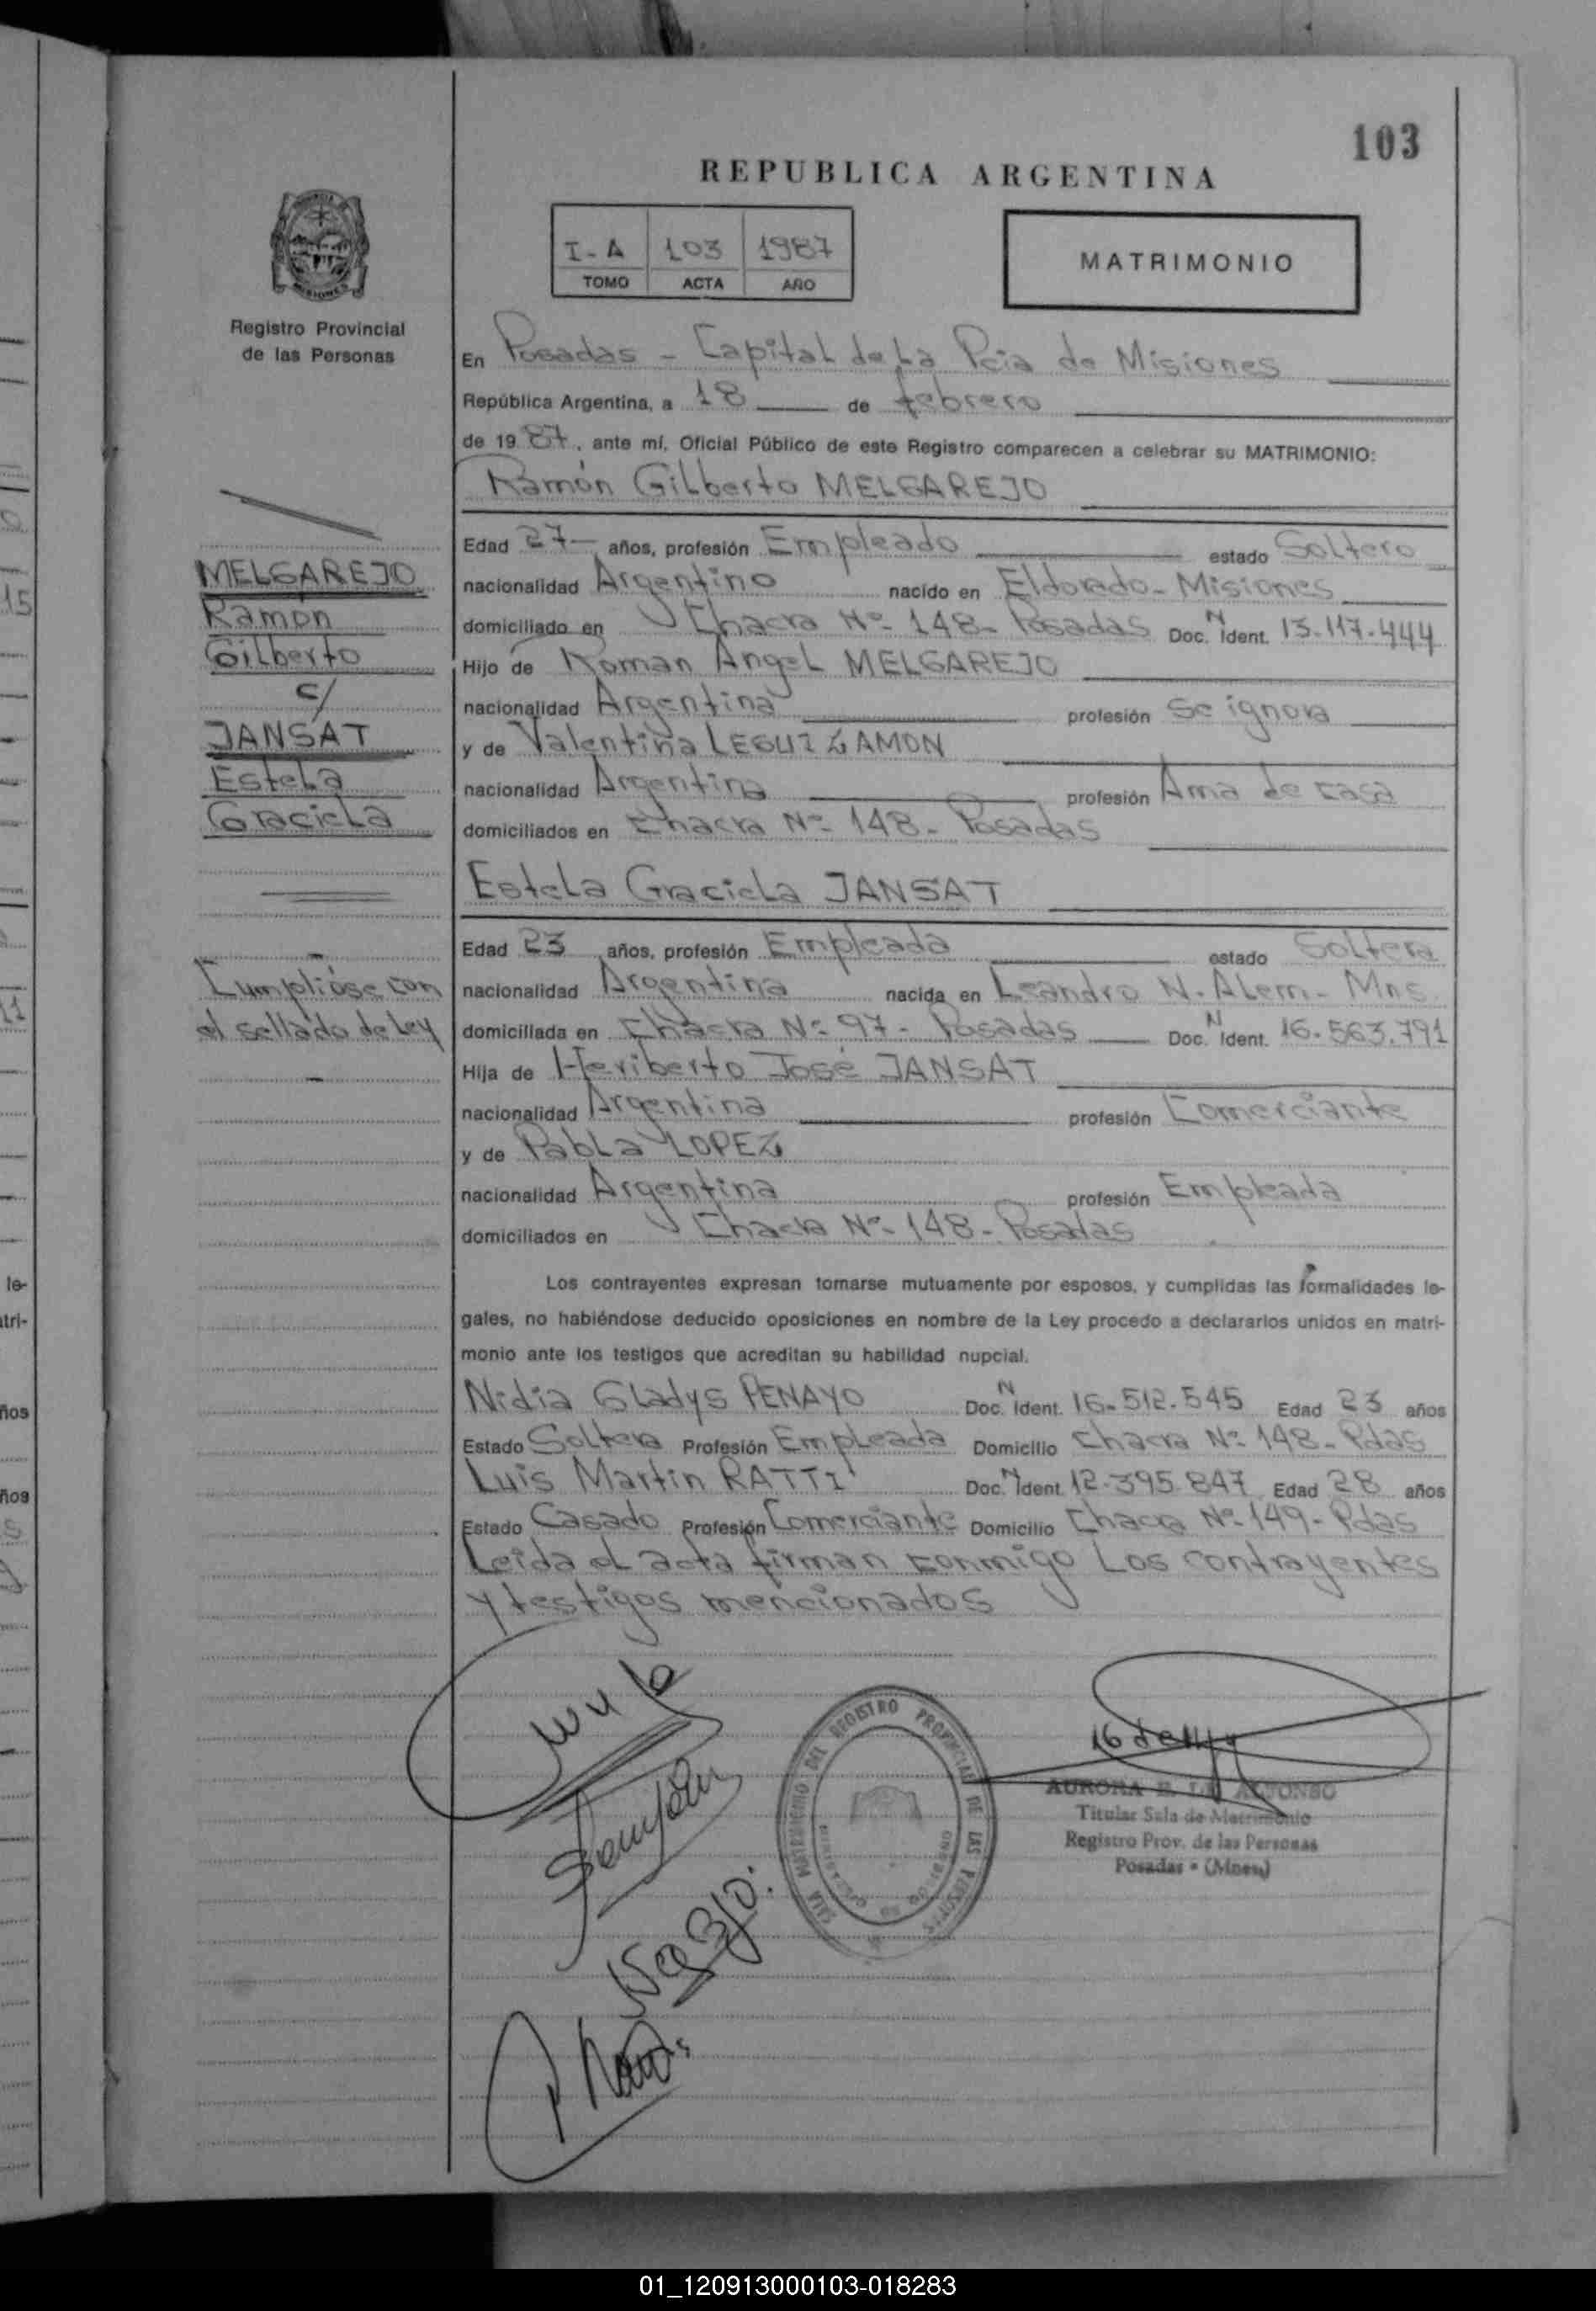 103
REPUBLICA ARGENTINA
I-A 103 1987
TOMO ACTA AÑO
MATRIMONIO
MISIONES
Registro Provincial
de las Personas
En Posadas - Capital de La Pcia de Misiones
República Argentina, a 18 de febrero
de 1987, ante mí, Oficial Público de este Registro comparecen a celebrar su MATRIMONIO:
Ramón Gilberto MELGAREJO
Edad 27 años, profesión Empleado estado Soltero
nacionalidad Argentino nacido en Eldorado - Misiones
domiciliado en Chacra Nº 148 - Posadas Doc. N Ident. 13.117.444
Hijo de Roman Angel MELGAREJO
nacionalidad Argentina profesión Se ignora
y de Valentina LEGUIZAMON
nacionalidad Argentina profesión Ama de casa
domiciliados en Chacra Nº 148 - Posadas
Estela Graciela JANSAT
Edad 23 años, profesión Empleada estado Soltera
nacionalidad Argentina nacida en Leandro N. Alem - Mns.
domiciliada en Chacra Nº 97 - Posadas Doc. N Ident. 16.563.791
Hija de Heriberto José JANSAT
nacionalidad Argentina profesión Comerciante
y de Pabla LOPEZ
nacionalidad Argentina profesión Empleada
domiciliados en Chacra Nº 148 - Posadas
Los contrayentes expresan tomarse mutuamente por esposos, y cumplidas las formalidades le-
gales, no habiéndose deducido oposiciones en nombre de la Ley procedo a declararlos unidos en matri-
monio ante los testigos que acreditan su habilidad nupcial.
Nidia Gladys PENAYO Doc. N Ident. 16.512.545 Edad 23 años
Estado Soltera Profesión Empleada Domicilio Chacra Nº 148 - Pdas
Luis Martin RATTI Doc. N Ident 12.395.847 Edad 28 años
Estado Casado Profesión Comerciante Domicilio Chacra Nº 149 - Pdas
Leida el acta firman conmigo Los contrayentes
y testigos mencionados
MELGAREJO
Ramón
Gilberto
c/
JANSAT
Estela
Graciela
Cumplióse con
el sellado de Ley
SALA MATRIMONIO DEL REGISTRO PROVINCIAL DE LAS PERSONAS
AURORA
Titular Sala de Matrimonio
Registro Prov. de las Personas
Posadas - (Mnes)
15
11
le-
tri-
ños
ños
01_120913000103-018283